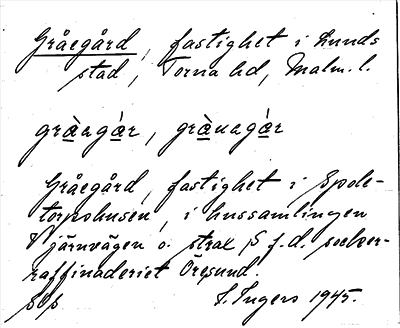 Gråegård, fastighet i Lunds
stad, Torna hd, Malm. l.
gràagár, grànagár
Gråegård, fastighet i Spole-
torpshusen, i hussamlingen
V järnvägen o. strax S f.d. socker-
raffinaderiet Öresund.
I. Ingers 1945.